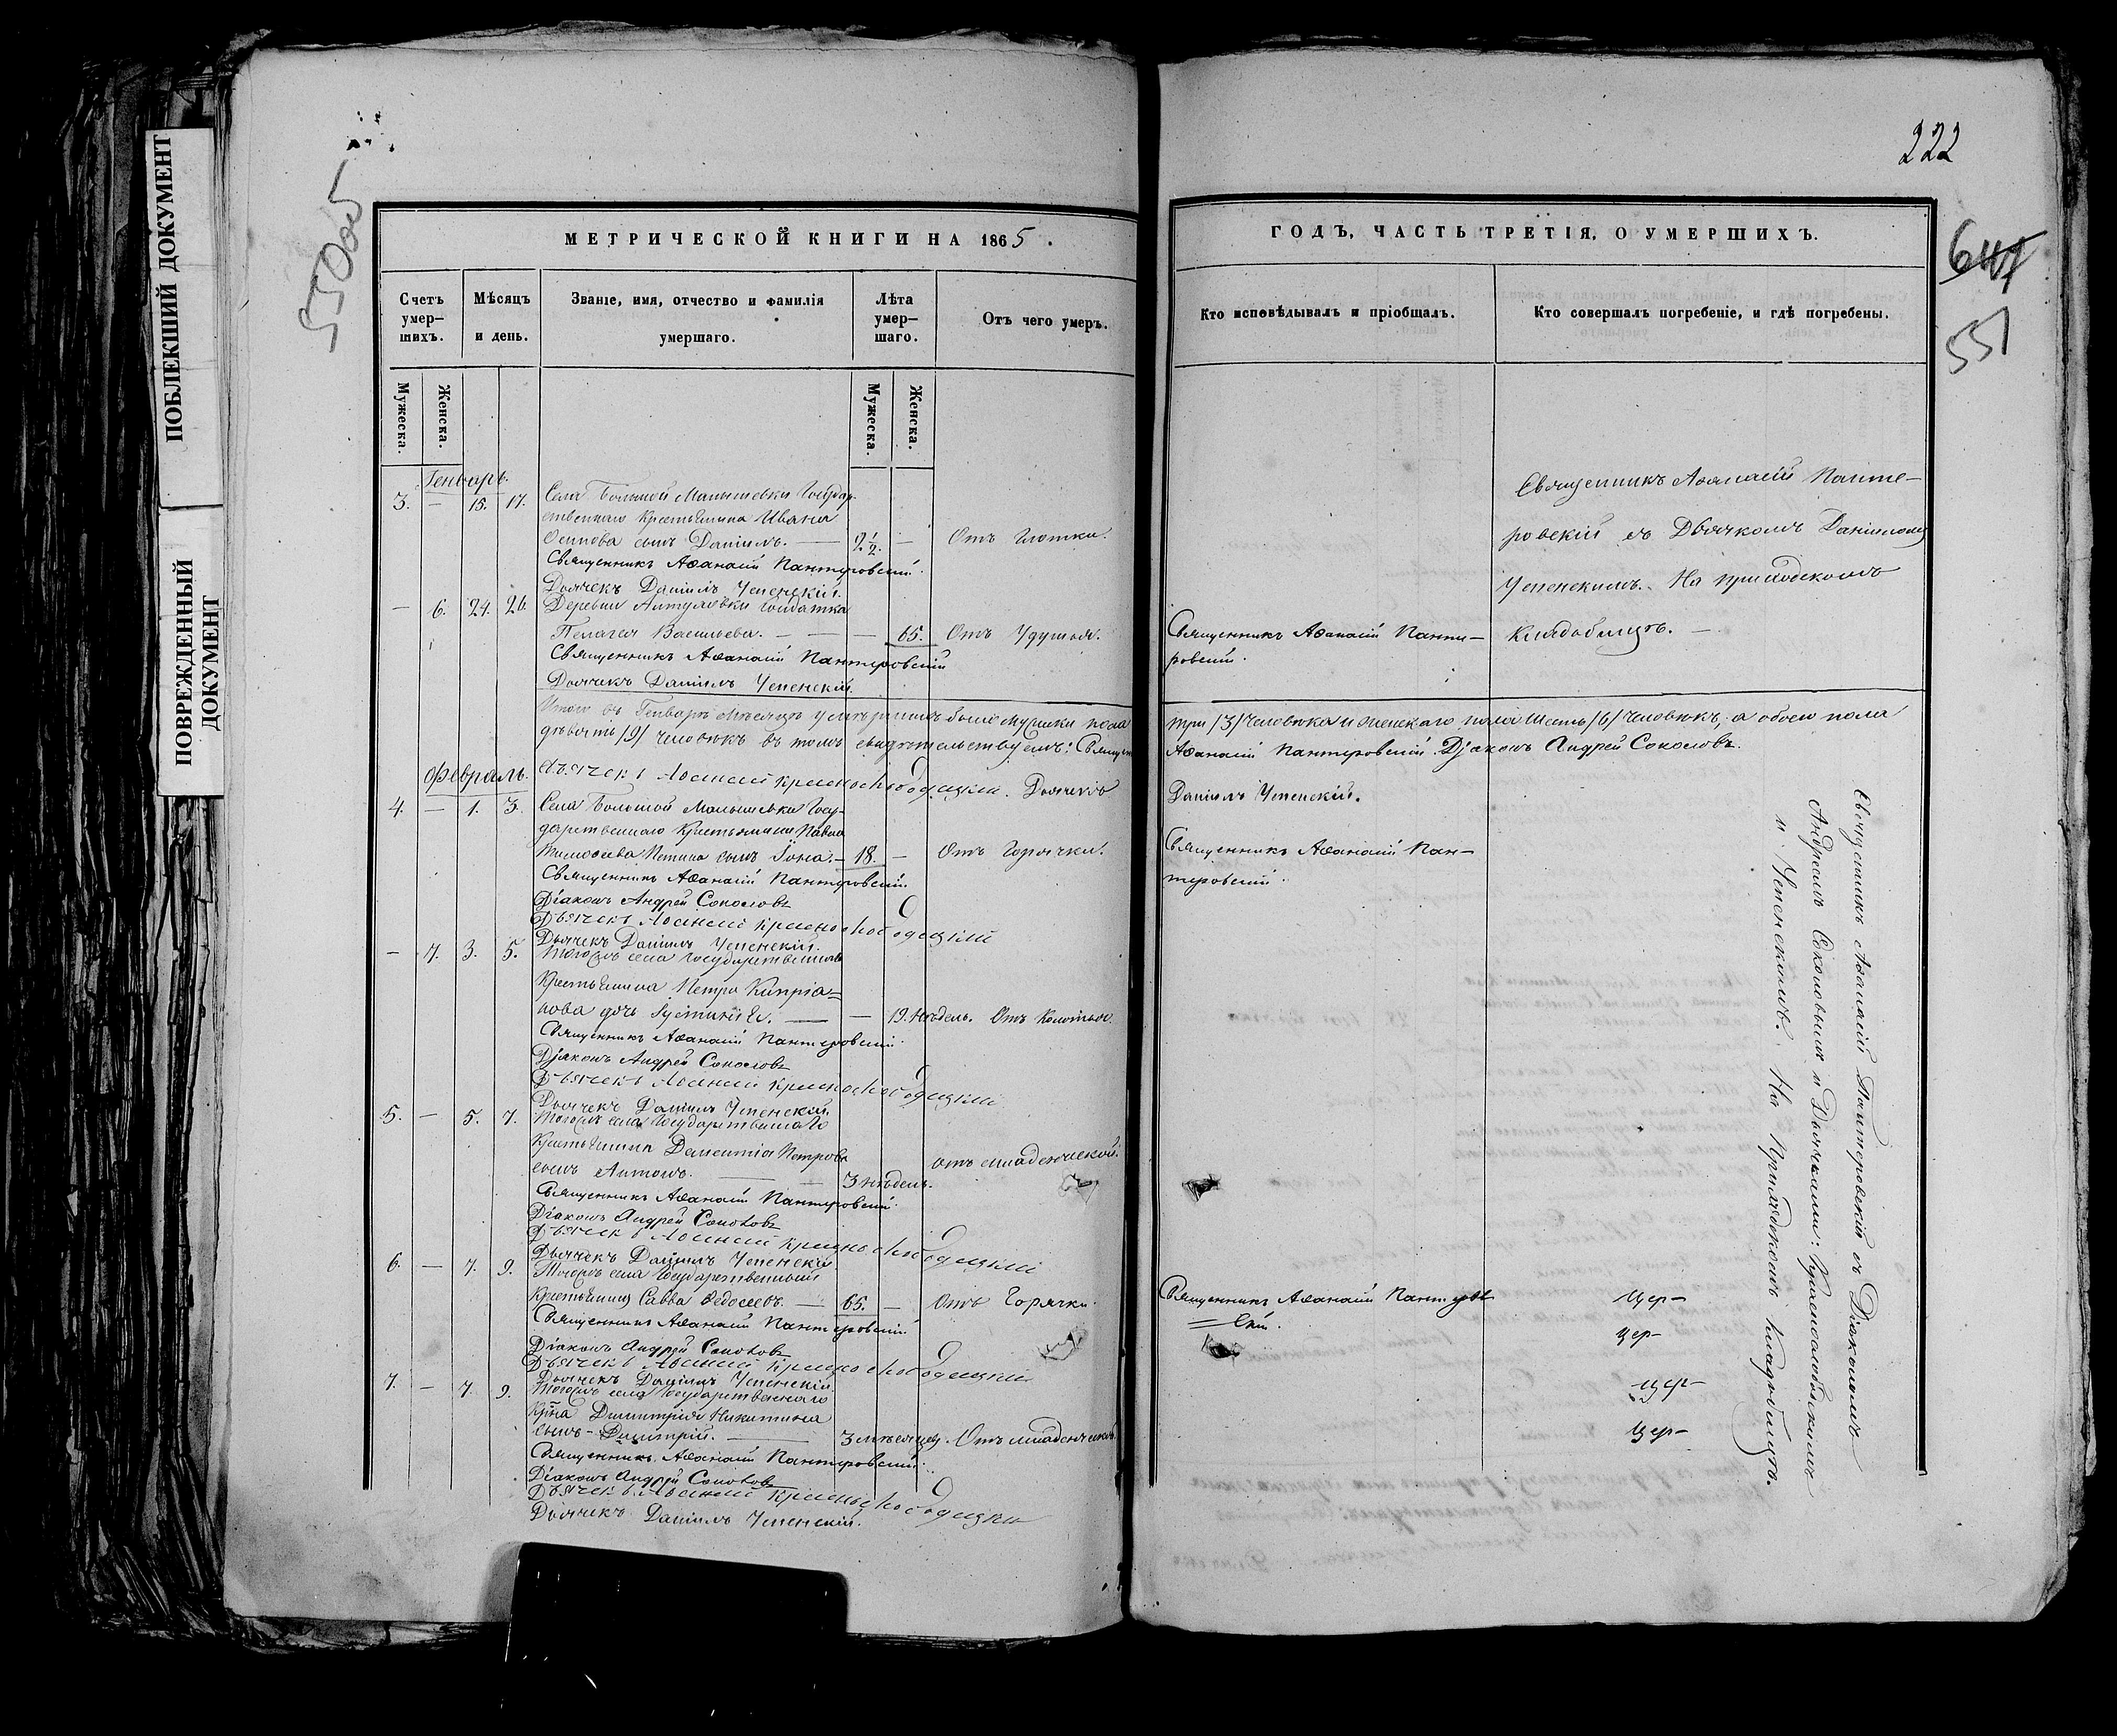 ПОБЛЕКШИЙ ДОКУМЕНТ
ПОВРЕЖДЕННЫЙ
ДОКУМЕНТ
550об
МЕТРИЧЕСКОЙ КНИГИ НА 1865.
Счетъ умер-шихъ.
Мѣсяцъ и день.
Званіе, имя, отчество и фамилія умершаго.
Лѣта умер-шаго.
Отъ чего умеръ.
Мужеска.
Женска.
Мужеска.
Женска.
Генварь.
3. — 15. 17. Села Большой Малышевки Государ-
ственнаго Крестьянина Ивана
Осипова сынъ Даніилъ. — 2 1/2. — Отъ Глотки.
Священникъ Аѳанасій Пантеровскій.
Дьячекъ Даніилъ Успенскій.
— 6. 24. 26. Деревни Алтуховки Солдатка
Пелагея Васильева. — — — 65. Отъ Удушья.
Священникъ Аѳанасій Пантеровскій
Дьячекъ Даніилъ Успенскій.
Итого въ Генварѣ мѣсяцѣ умершихъ было мужска пола
девять /9/ человѣкъ въ томъ свидѣтельствуемъ: Священ
Февраль. Дьячекъ Краснослободцкій. Дьячекъ
4. — 1. 3. Села Большой Малышевки Госу-
дарственнаго Крестьянина Павла
Тимоѳеева сынъ Іона. — 18. — Отъ Горячки.
Священникъ Аѳанасій Пантеровскій.
Діаконъ Андрей Соколовъ
Дьячекъ Краснослободцкій
Дьячекъ Даніилъ Успенскій.
— 7. 3. 5. Тогожъ села Государственнаго
Крестьянина Петра Кипріа=
нова дочь Іустинія. — — 19. недѣль. Отъ Колотья.
Священникъ Аѳанасій Пантеровскій.
Діаконъ Андрей Соколовъ
Дьячекъ Краснослободцкій
Дьячекъ Даніилъ Успенскій.
5. — 5. 7. Тогожъ села Государственнаго
Крестьянина Дементія Петрова
сынъ Антонъ. — — 3 недѣль. отъ младенческой.
Священникъ Аѳанасій Пантеровскій.
Діаконъ Андрей Соколовъ
Дьячекъ Краснослободцкій
Дьячекъ Даніилъ Успенскій.
6. — 7. 9. Тогожъ села Государственный
Крестьянинъ Савва Ѳедосеевъ. — 65. — Отъ Горячки.
Священникъ Аѳанасій Пантеровскій
Діаконъ Андрей Соколовъ
Дьячекъ Краснослободцкій
Дьячекъ Даніилъ Успенскій.
7. — 7. 9. Тогожъ села Государственнаго
Кр̃на Димитрія Никитина
сынъ Димитрій. — 3 мѣсяцев. Отъ младенческой.
Священникъ Аѳанасій Пантеровскій.
Діаконъ Андрей Соколовъ
Дьячекъ Краснослободцкій
Дьячекъ Даніилъ Успенскій.
222
647
551
ГОДЪ, ЧАСТЬ ТРЕТІЯ, О УМЕРШИХЪ.
Кто исповѣдывалъ и пріобщалъ.
Кто совершалъ погребеніе, и гдѣ погребены.
Священникъ Аѳанасій Панте-
ровскій съ Дьячкомъ Даніиломъ
Успенскимъ. На приходскомъ
Кладбищѣ. —
Священникъ Аѳанасій Панте-
ровскій.
три /3/ человѣка и женскаго пола шесть /6/ человѣкъ; а обоего пола
Аѳанасій Пантеровскій. Діаконъ Андрей Соколовъ.
Даніилъ Успенскій.
Священникъ Аѳанасій Пан-
теровскій.
Священникъ Аѳанасій Пантеров
=скій.
Цер-
Цер-
Цер-
Цер-
Священникъ Аѳанасій Пантеровскій съ Діакономъ
Андреемъ Соколовымъ и Дьячками: Краснослободскимъ
и Успенскимъ. На Приходскомъ Кладбищѣ.